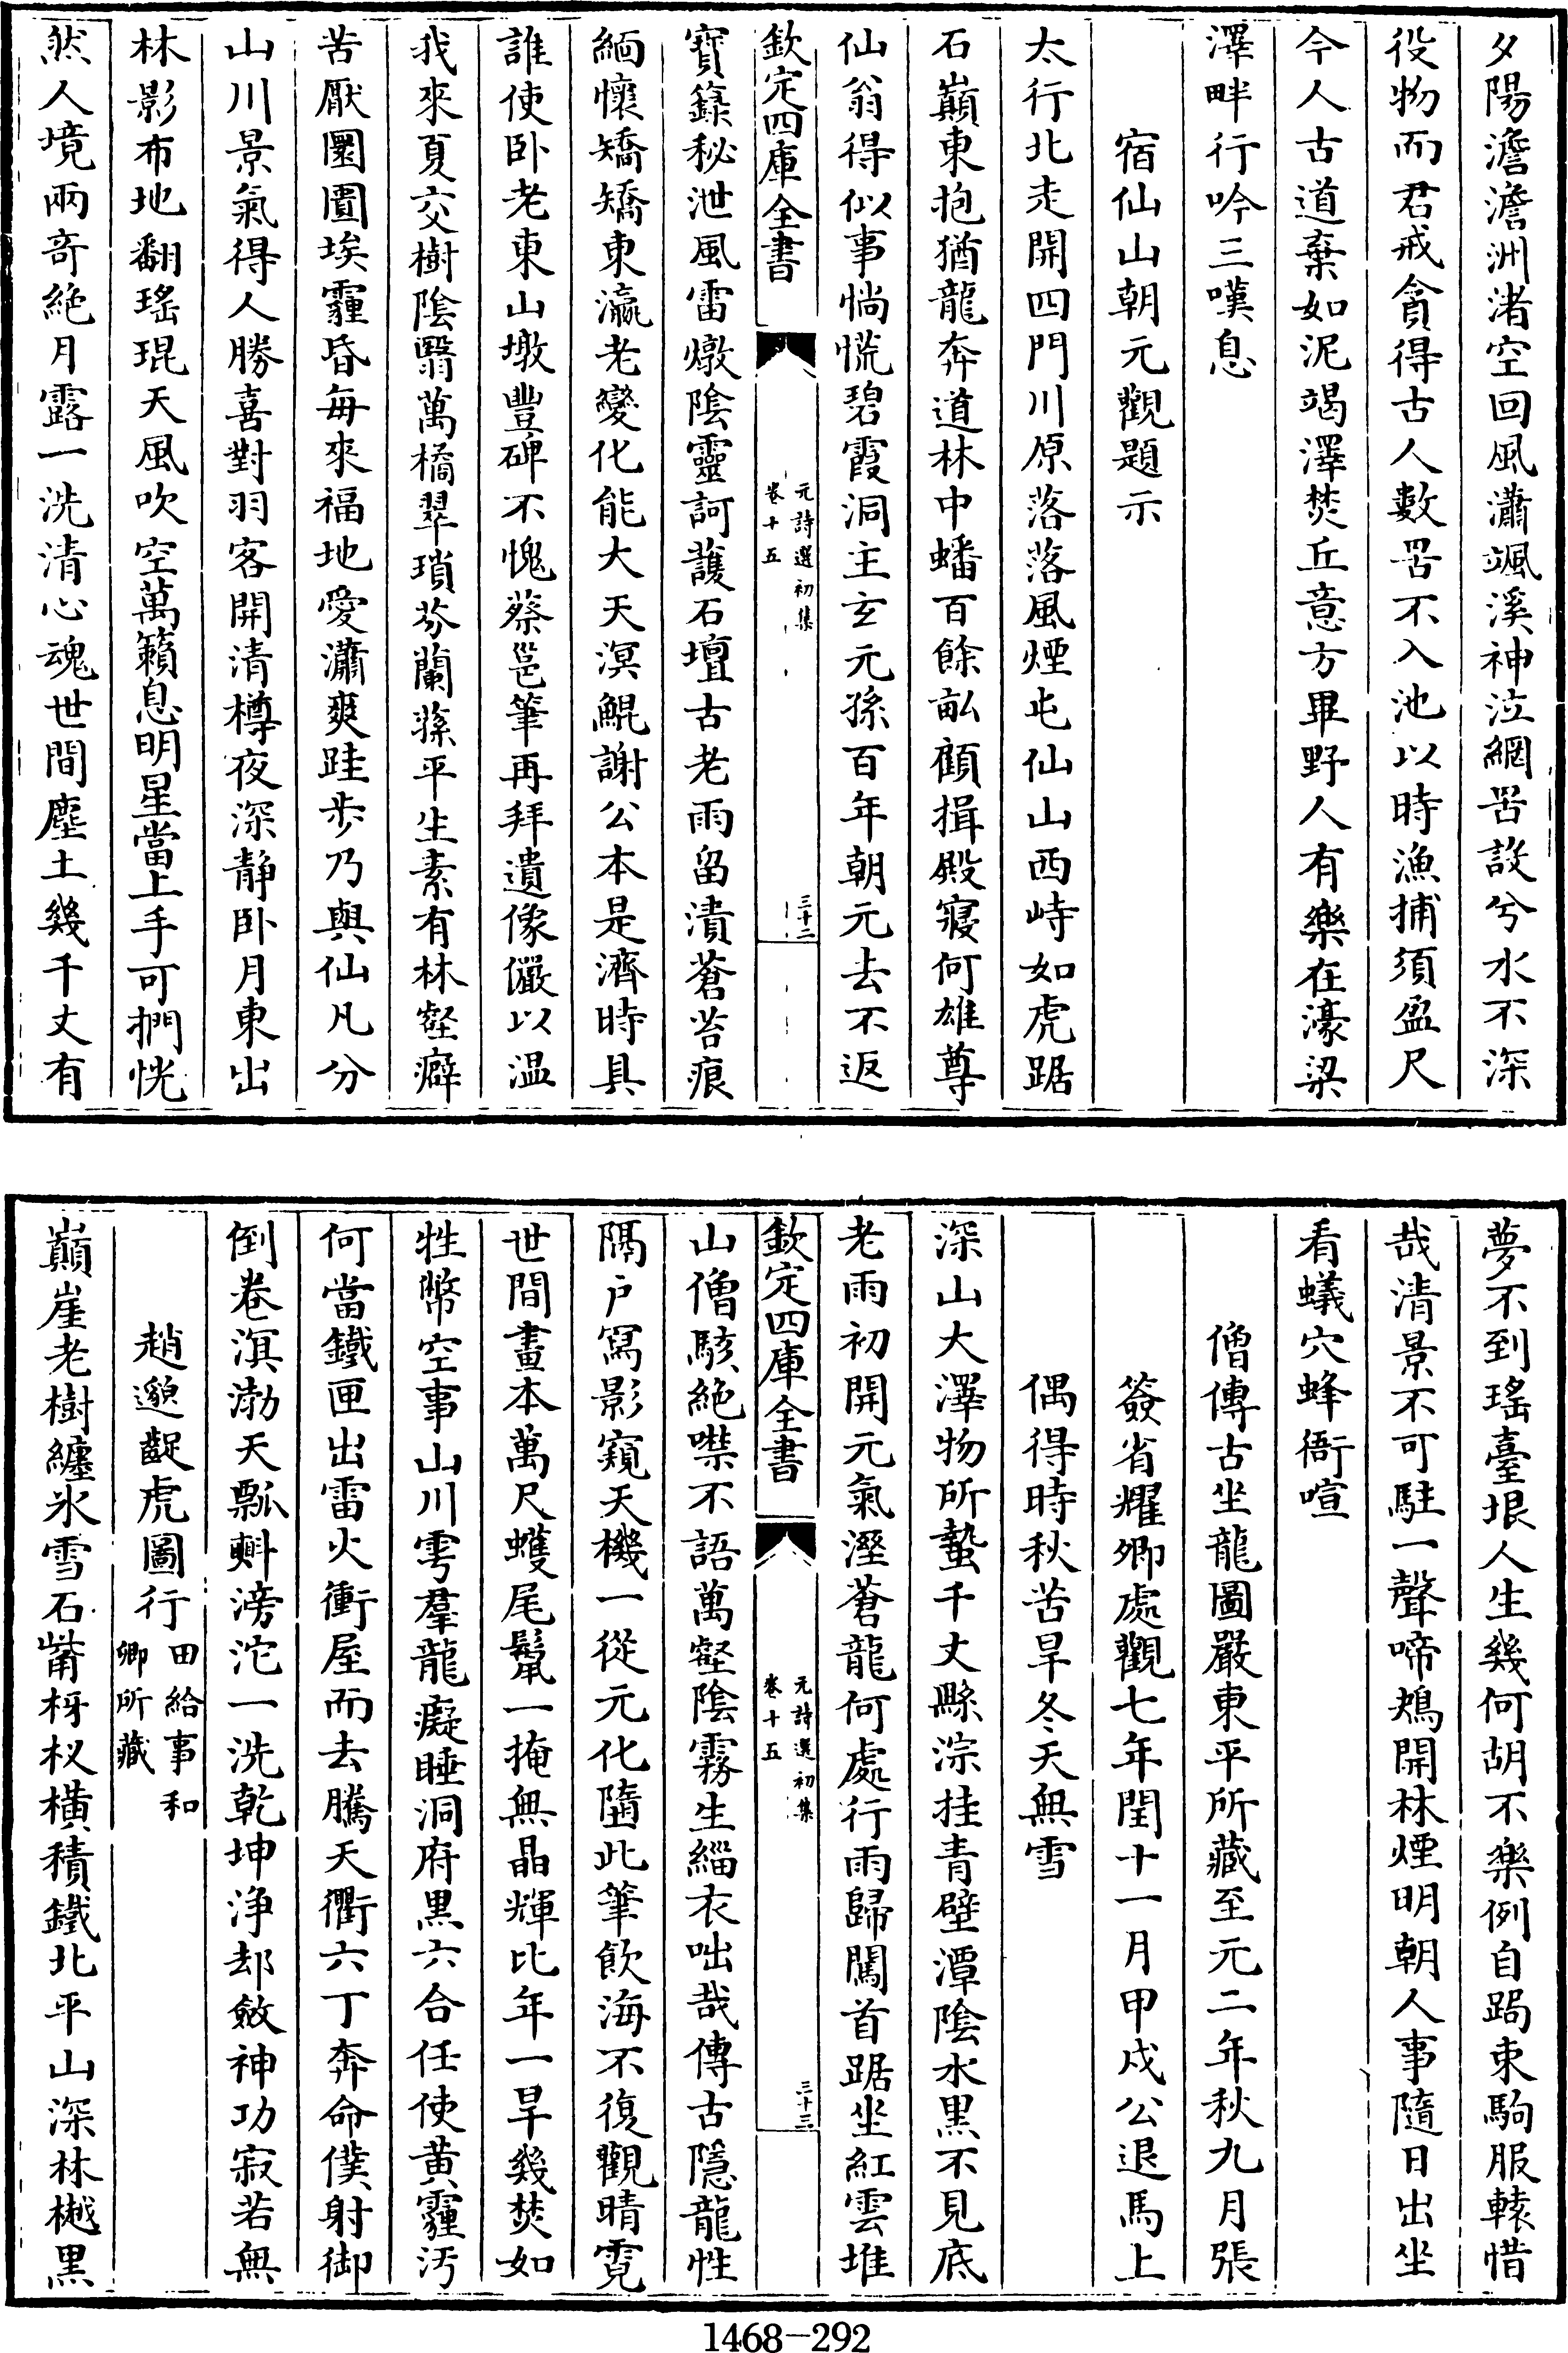 夕陽澹澹洲渚空回風瀟颯溪神泣網罟設兮水不深
役物而君戒貪得古人數罟不入池以時漁捕須盈尺
今人古道棄如泥竭澤焚丘意方畢野人有樂在濠梁
澤畔行吟三嘆息
宿仙山朝元觀題示
太行北走開四門川原落落風煙屯仙山西峙如虎踞
石巔東抱猶龍奔道林中蟠百餘畝顧揖殿寢何雄尊
仙翁得似事惝慌碧霞洞主玄元孫百年朝元去不返
欽定四庫全書
元詩選初集
卷十五
三十二
寶籙秘泄風雷燉陰靈訶護石壇古老雨留漬蒼苔痕
緬懷矯矯東瀛老變化能大天溟鯤謝公本是濟時具
誰使卧老東山墩豐碑不愧蔡邕筆再拜遺像儼以温
我來夏交樹陰翳萬橘翠瑣芬蘭蓀平生素有林壑癖
苦厭闤闠埃霾昏每來福地愛瀟爽跬步乃與仙凡分
山川景氣得人勝喜對羽客開清樽夜深静卧月東出
林影布地翻瑤琨天風吹空萬籟息明星當上手可捫恍
然人境兩奇絶月露一洗清心魂世間塵土幾千丈有
夢不到瑤臺垠人生幾何胡不樂例自跼束駒服轅惜
哉清景不可駐一聲啼鴂開林煙明朝人事隨日出坐
看蟻穴蜂衙喧
僧傳古坐龍圖嚴東平所藏至元二年秋九月張
簽省耀卿處觀七年閏十一月甲戌公退馬上
偶得時秋苦旱冬天無雪
深山大澤物所蟄千丈縣淙挂青壁潭陰水黒不見底
老雨初開元氣溼蒼龍何處行雨歸闖首踞坐紅雲堆
欽定四庫全書
元詩選初集
卷十五
三十三
山僧駭絶噤不語萬壑陰霧生緇衣咄哉傳古隱龍性
隔户寫影窺天機一從元化墮此筆飲海不復觀晴霓
世間畫本萬尺蠖尾鬣一掩無晶輝比年一旱幾焚如
牲幣空事山川雩羣龍癡睡洞府黒六合任使黄霾汚
何當鐵匣出雷火衝屋而去騰天衢六丁奔命僕射御
倒卷溟渤天瓢㪺滂沱一洗乾坤浄却斂神功寂若無
趙邈齪虎圖行田給事和
卿所藏
巔崖老樹纏氷雪石觜枒杈橫積鐵北平山深林樾黒
1468-292